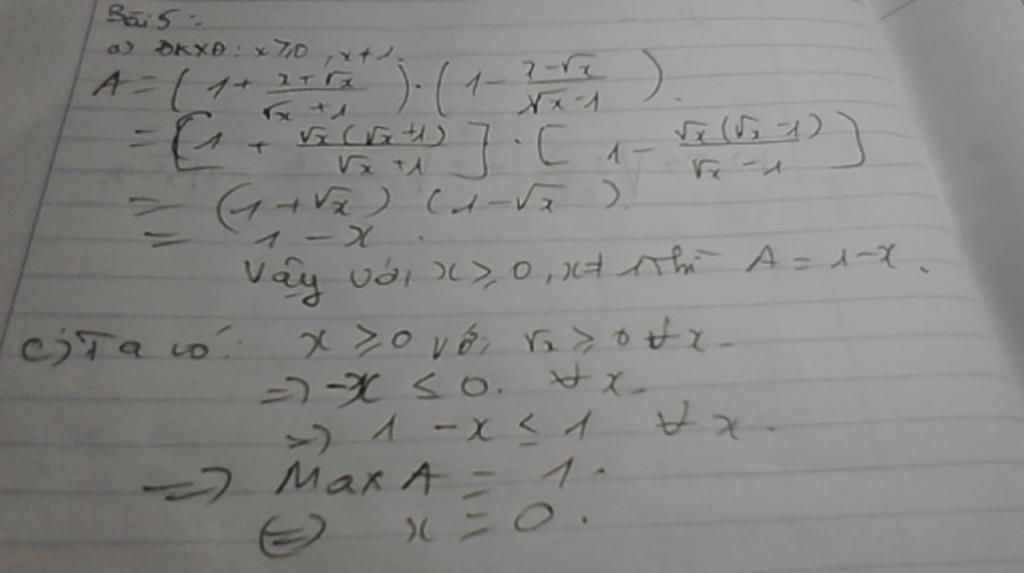 Bài 5:
a) ĐKXĐ: x ≥ 0, x ≠ 1.
A = (1 + (x + √x)/(√x + 1)) · (1 - (x - √x)/(√x - 1)).
= [1 + √x(√x + 1)/(√x + 1)] · [1 - √x(√x - 1)/(√x - 1)]
= (1 + √x) (1 - √x).
= 1 - x.
Vậy với x ≥ 0, x ≠ 1 thì A = 1 - x.
c) Ta có: x ≥ 0 với √x ≥ 0 ∀ x.
=> -x ≤ 0. ∀ x.
=> 1 - x ≤ 1 ∀ x.
=> Max A = 1.
(=) x = 0.